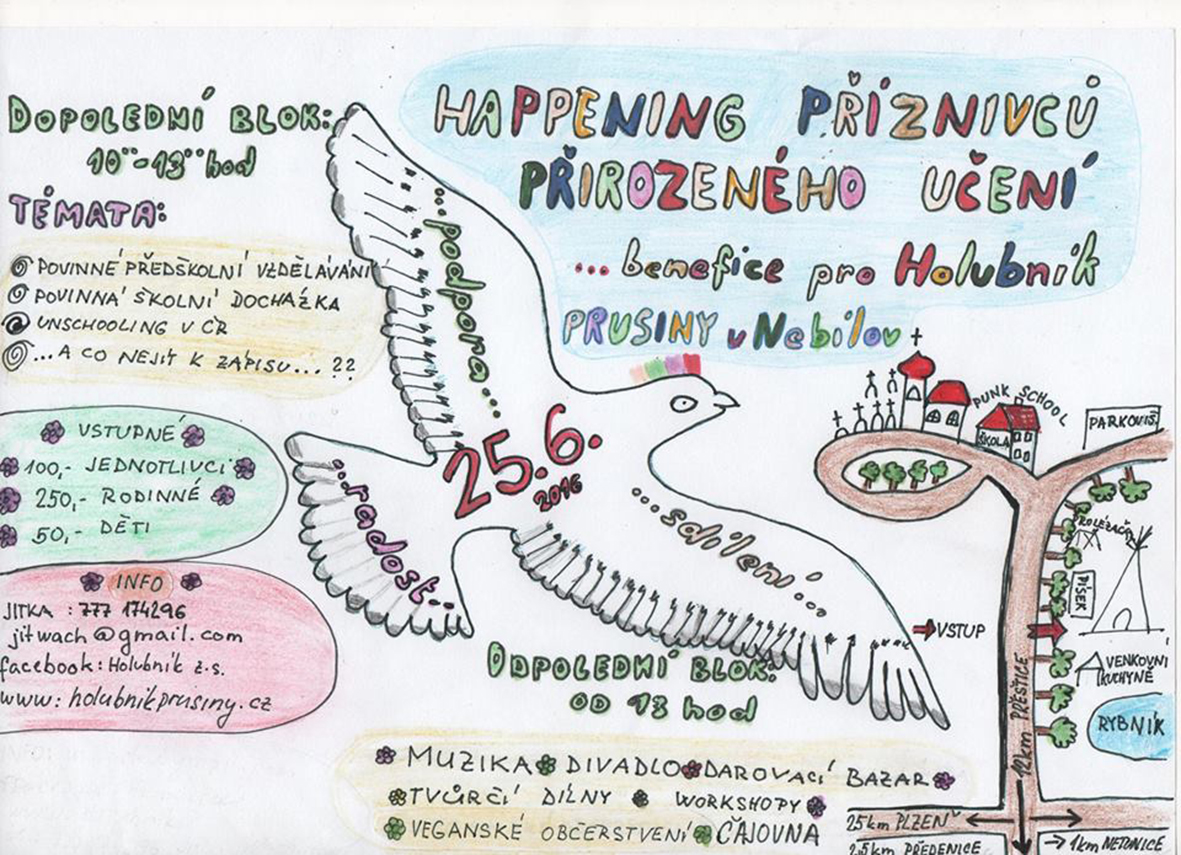 HAPPENING PŘÍZNIVCŮ
PŘIROZENÉHO UČENÍ
... benefice pro Holubník
PRUSINY u Nebílov
DOPOLEDNÍ BLOK:
10°°-13°° hod
TÉMATA:
POVINNÉ PŘEDŠKOLNÍ VZDĚLÁVÁNÍ
POVINNÁ ŠKOLNÍ DOCHÁZKA
UNSCHOOLING V ČR
...A CO NEJÍT K ZÁPISU... ??
VSTUPNÉ
100,- JEDNOTLIVCI
250,- RODINNÉ
50,- DĚTI
INFO
JITKA : 777 174296
jitwach@gmail.com
facebook: Holubník z.s.
www: holubnikprusiny.cz
...podpora...
25.6.
2016
...radost...
...sdílení...
ODPOLEDNÍ BLOK:
OD 13 hod
MUZIKA DIVADLO DAROVACÍ BAZAR
TVŮRČÍ DÍLNY WORKSHOPY
VEGANSKÉ OBČERSTVENÍ ČAJOVNA
PUNK SCHOOL
ŠKOLA
PARKOVIŠ
PÍSEK
VSTUP
VENKOVNÍ
KUCHYNĚ
RYBNÍK
12km PŘEŠTICE
25km PLZEŇ
2,5km PŘEDENICE
→ 1km NETUNICE